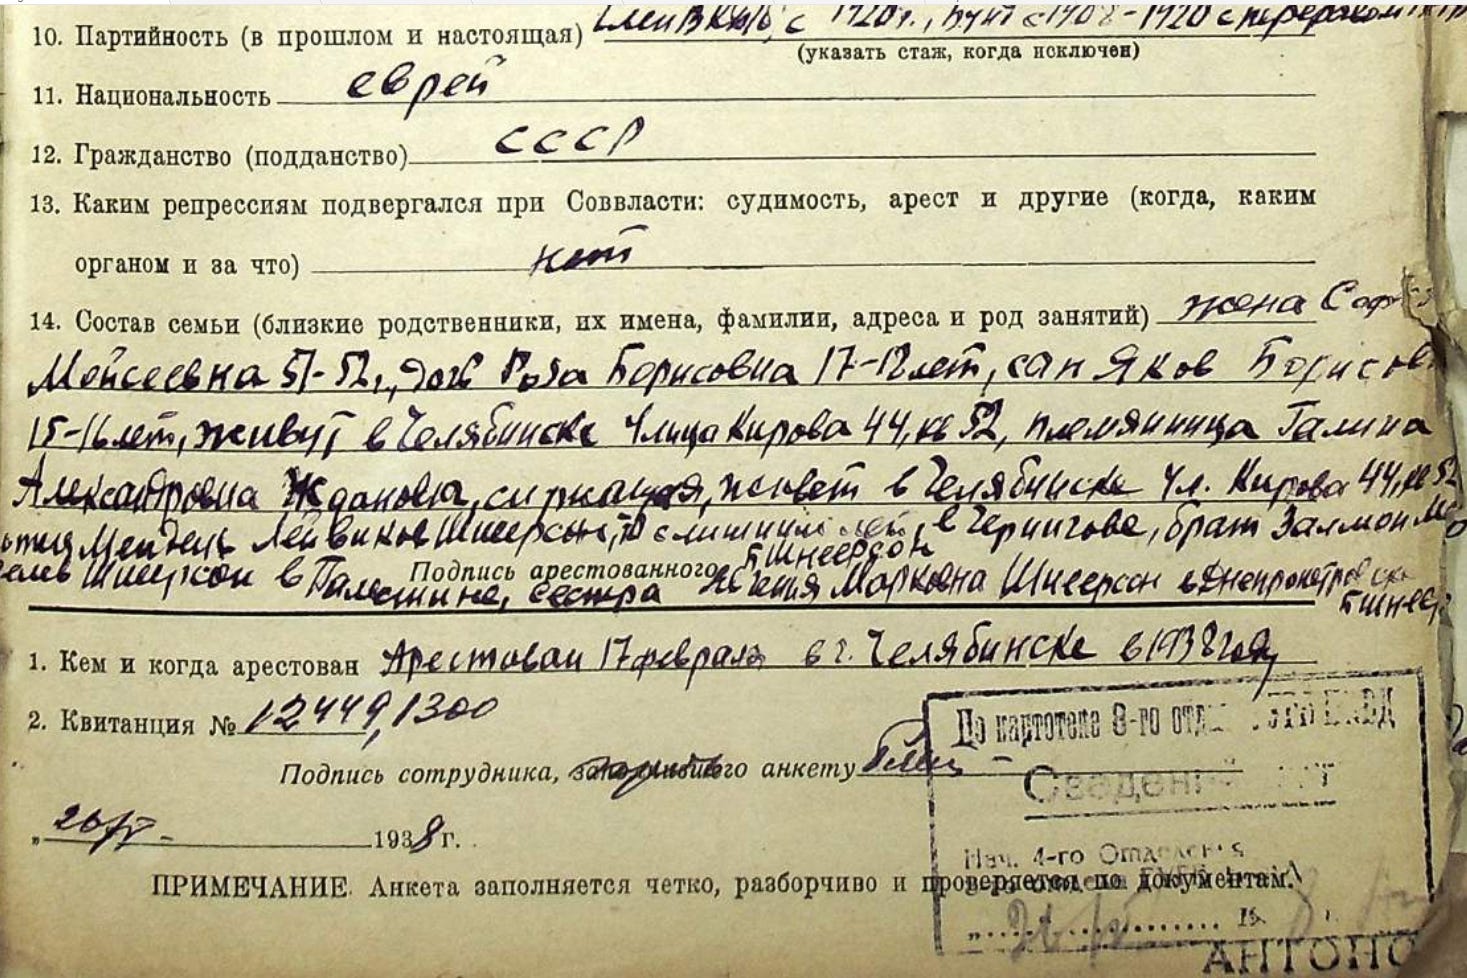 10. Партийность (в прошлом и настоящая) член ВКП/б/ с 1920 г., Бунт с 1908-1920 с перерывом
(указать стаж, когда исключен)
11. Национальность еврей
12. Гражданство (подданство) СССР
13. Каким репрессиям подвергался при Соввласти: судимость, арест и другие (когда, каким
органом и за что) нет
14. Состав семьи (близкие родственники, их имена, фамилии, адреса и род занятий) жена Соф
Мойсеевна 51-52, дочь Роза Борисовна 17-18 лет, сын Яков Борисов
15-16 лет, живут в Челябинске Улица Кирова 44, кв 52, племянница Галина
Александровна Жданова, живет в Челябинске Ул. Кирова 44, кв 52
Шнеерсон, в Чернигове, брат Залмон
Шнеерсон в Палестине, сестра Марковна Шнеерсон в Днепропетровске
Подпись арестованного БШнеерсон
БШнеер
1. Кем и когда арестован Арестован 17 февраля в г. Челябинске в 1938 году
2. Квитанция № 12449, 1300
Подпись сотрудника, заполнившего анкету
„ 26/ 1938 г.
ПРИМЕЧАНИЕ. Анкета заполняется четко, разборчиво и проверяется по документам.
По картотеке 8-го НКВД
Сведений нет
Нач. 4-го Отделения
АНТОНО